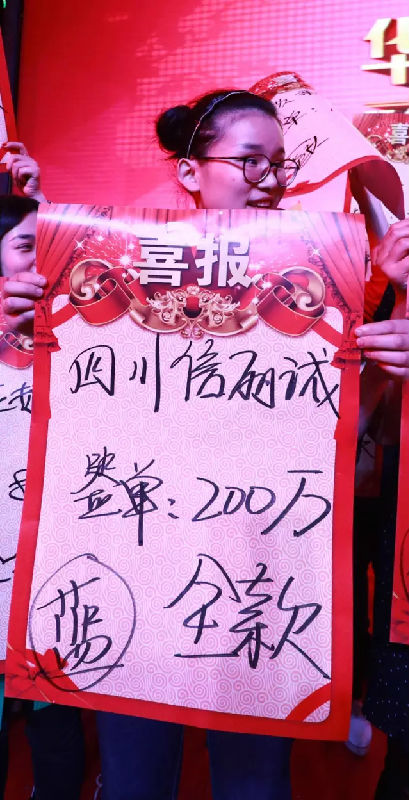 华
喜报
四川倍丽诚
签单：200万
蓝
全款